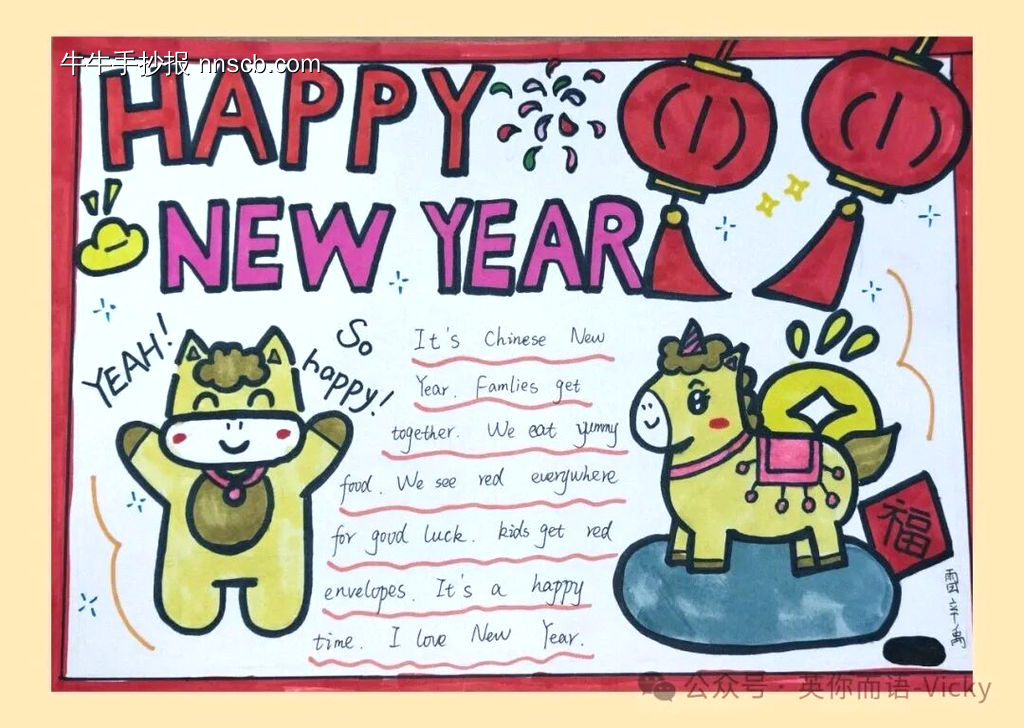 牛牛手抄报 nnscb.com
HAPPY
NEW YEAR
YEAH!
So
happy!
It's Chinese New
Year. Famlies get
together. We eat yummy
food. We see red everywhere
for good luck. kids get red
envelopes. It's a happy
time. I love New Year.
福
公众号·英你而语-Vicky